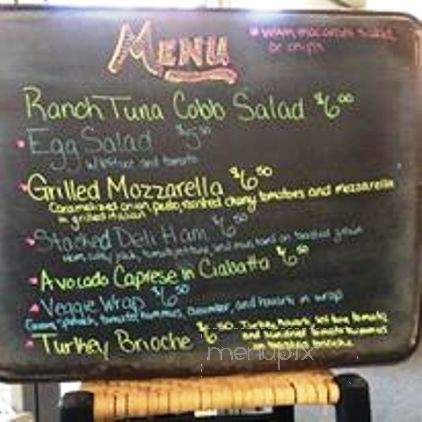 MENU
* with macaroni salad
or chips
Ranch Tuna Cobb Salad $6.00
Egg Salad $5.50
w/ lettuce and tomato
Grilled Mozzarella $6.50
Caramelized onion, pesto, roasted cherry tomatoes and mozzarella
in grilled italian
Stacked Deli Ham $6.50
on toasted
Avocado Caprese in Ciabatta $6.50
Veggie Wrap $6.50
spinach, tomato, hummus, cucumber, and in wrap
Turkey Brioche $6.50 Turkey, tomato
and sundried tomato hummus
on toasted brioche
menupix